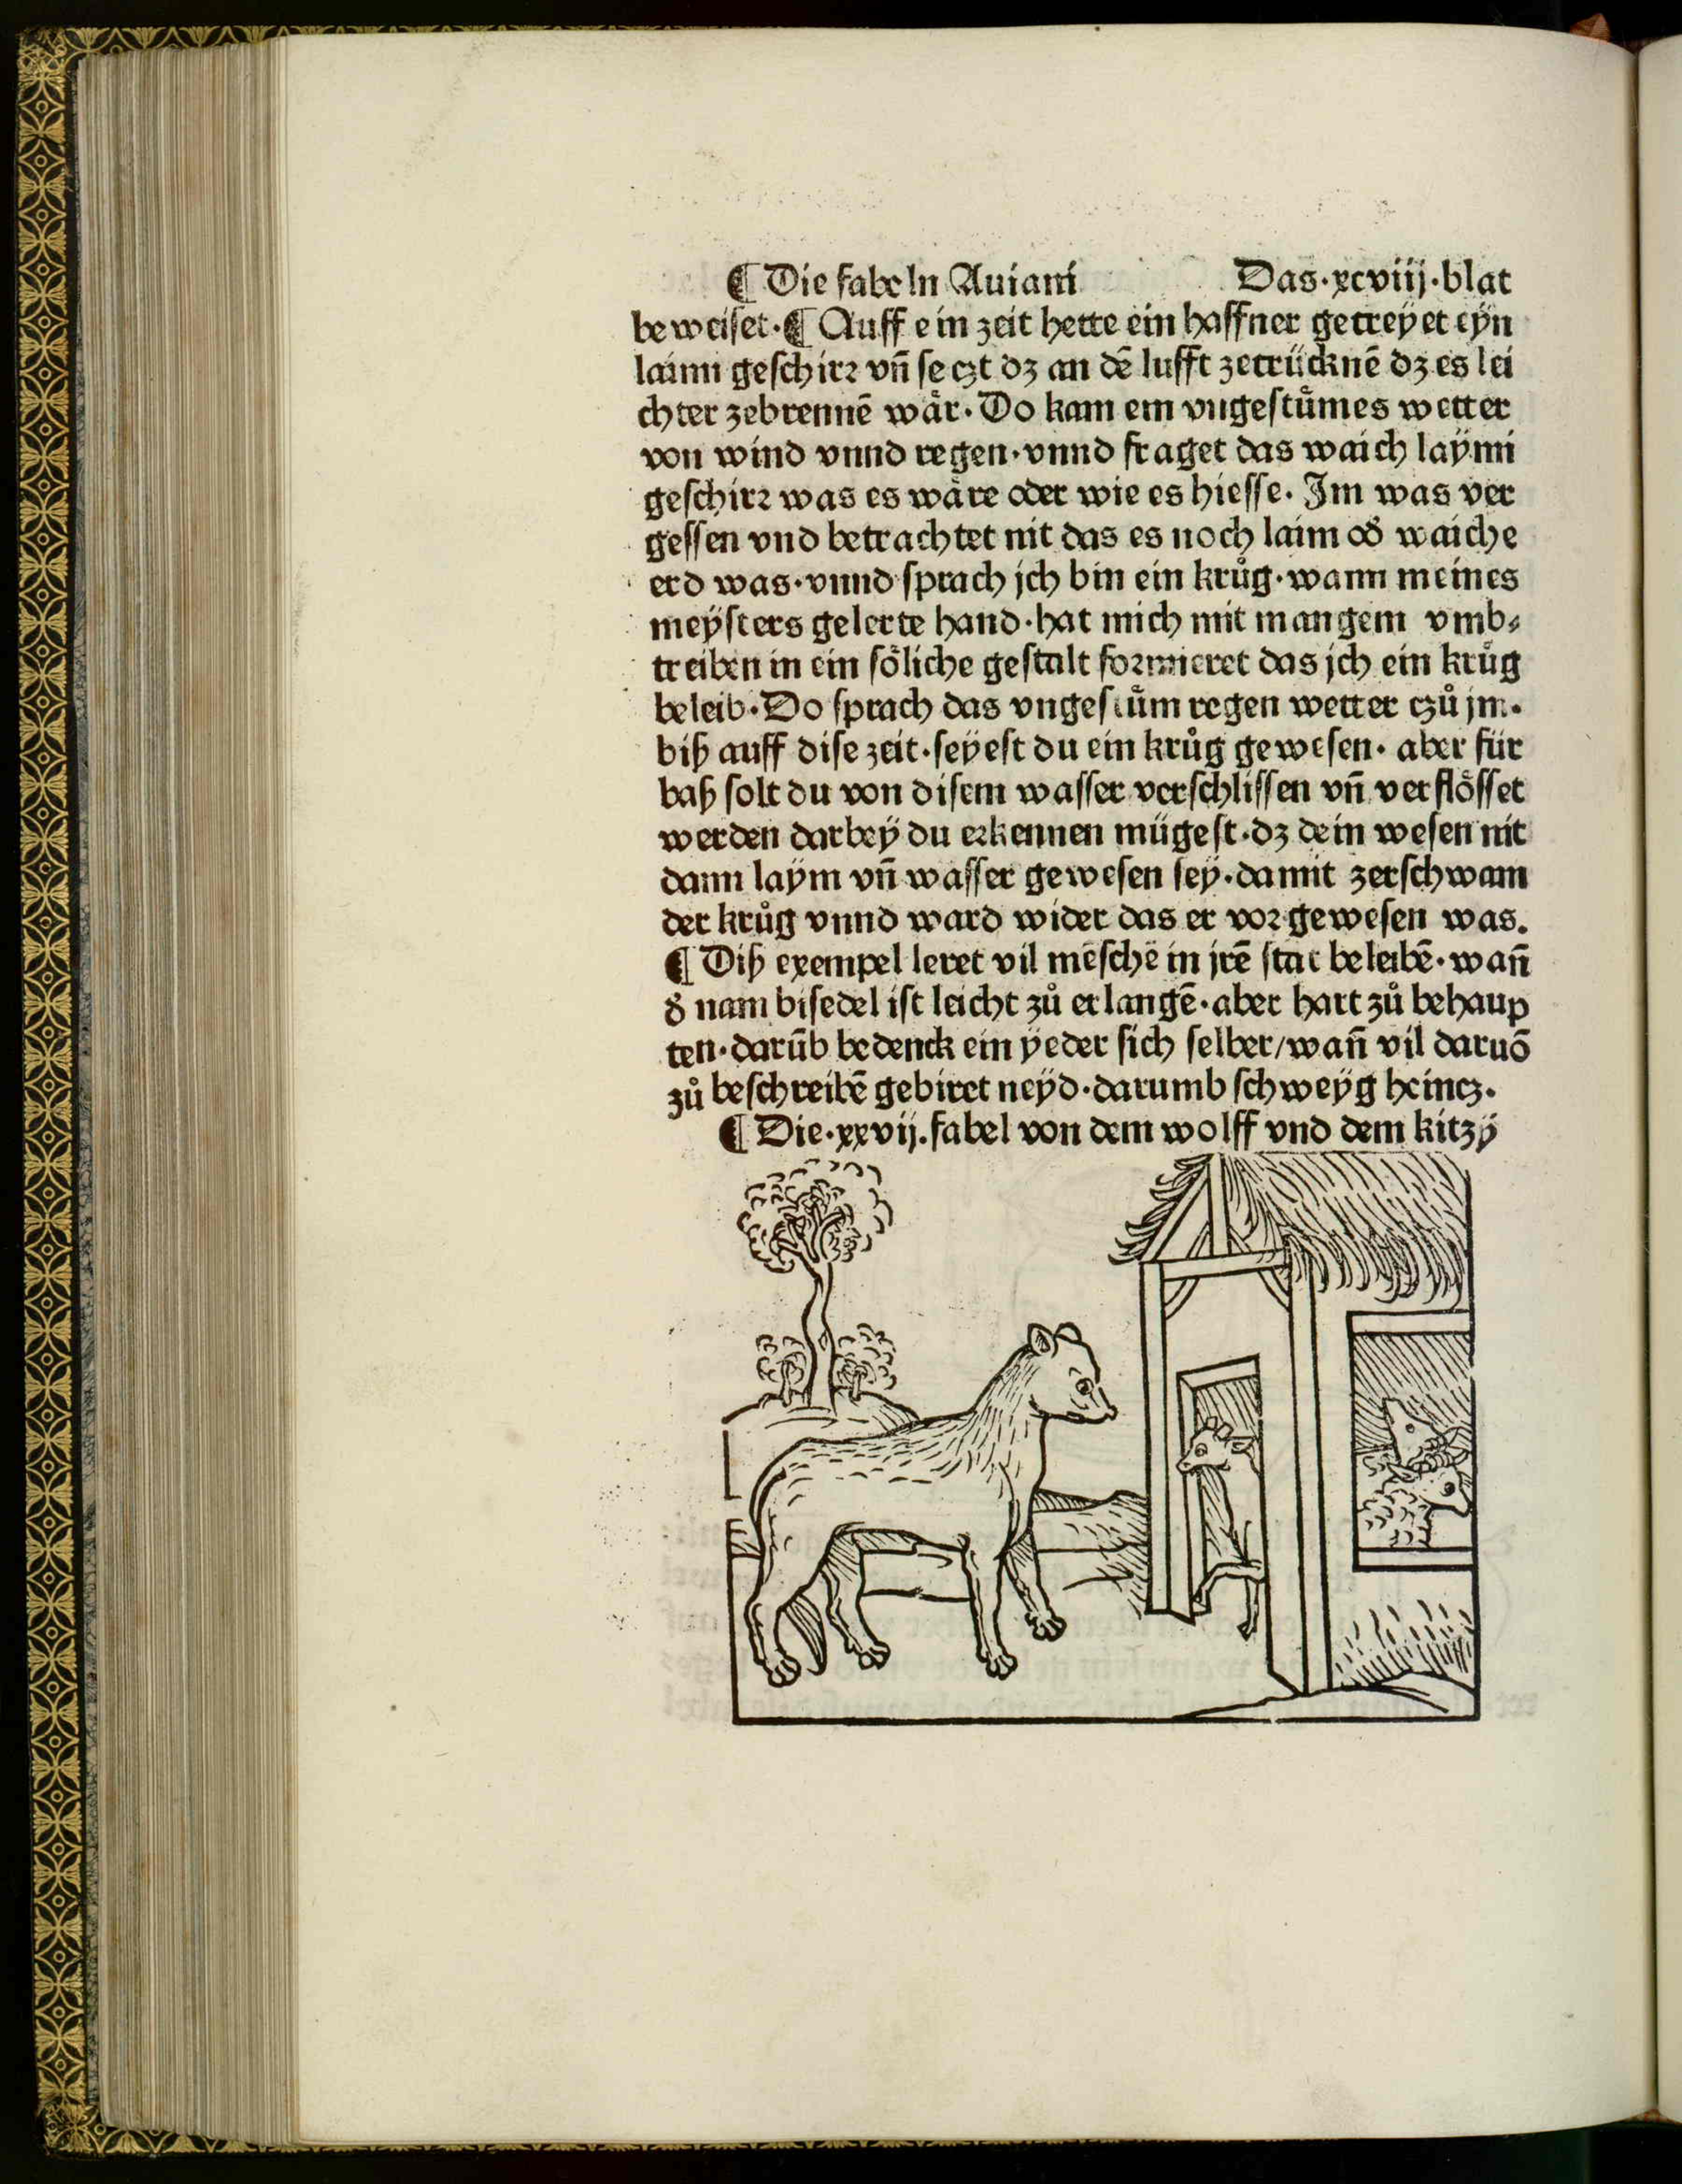 ¶ Die fabeln Auiani Das·xcviij·blat
beweiset·¶ Auff ein zeit hette ein haffner getreyet eyn
laimi geschirr vñ seczt dz an dē lufft zetrücknē dz es lei
chter zebrennē wår·Do kam ein vngestůmes wetter
von wind vnnd regen·vnnd fraget das waich laymi
geschirr was es wåre oder wie es hiesse. Im was ver
gessen vnd betrachtet nit das es noch laim oď waiche
erd was·vnnd sprach jch bin ein krůg·wann meines
meysters gelerte hand·hat mich mit mangem vmb⸗
treiben in ein söliche gestalt formieret das jch ein krůg
beleib·Do sprach das vngestům regen wetter czů jm.
biß auff dise zeit·seyest du ein krůg gewesen· aber für
baß solt du von disem wasser verschlissen vñ verflösset
werden darbey du erkennen mügest·dz dein wesen nit
dann laym vñ wasser gewesen sey·damit zerschwam
der krůg vnnd ward wider das er vor gewesen was.
¶ Diß exempel leret vil mēschē in jrē stat beleibē·wañ
ď nam bisedel ist leicht zů erlangē·aber hart zů behaup
ten·darūb bedenck ein yeder sich selber/wañ vil daruō
zů beschreibē gebiret neyd·darumb schweyg heincz.
¶ Die·xxvij.fabel von dem wolff vnd dem kitzy